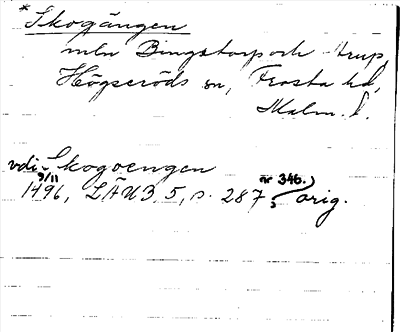 * Skogängen
mln Bingstorp och -trup,
Högseröds sn, Frosta hd,
Malm. l.
vdi Skogoengen
9/11 1496, LÄUB 5, s. 287, nr 346. orig.